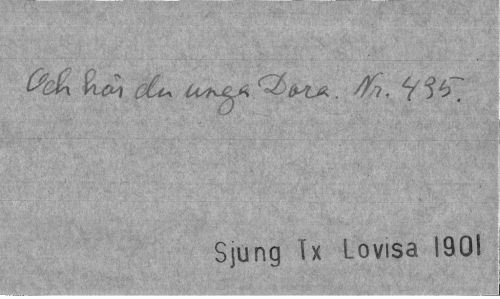 Och hör du unga Dora. Nr. 495.
Sjung Tx Lovisa 1901